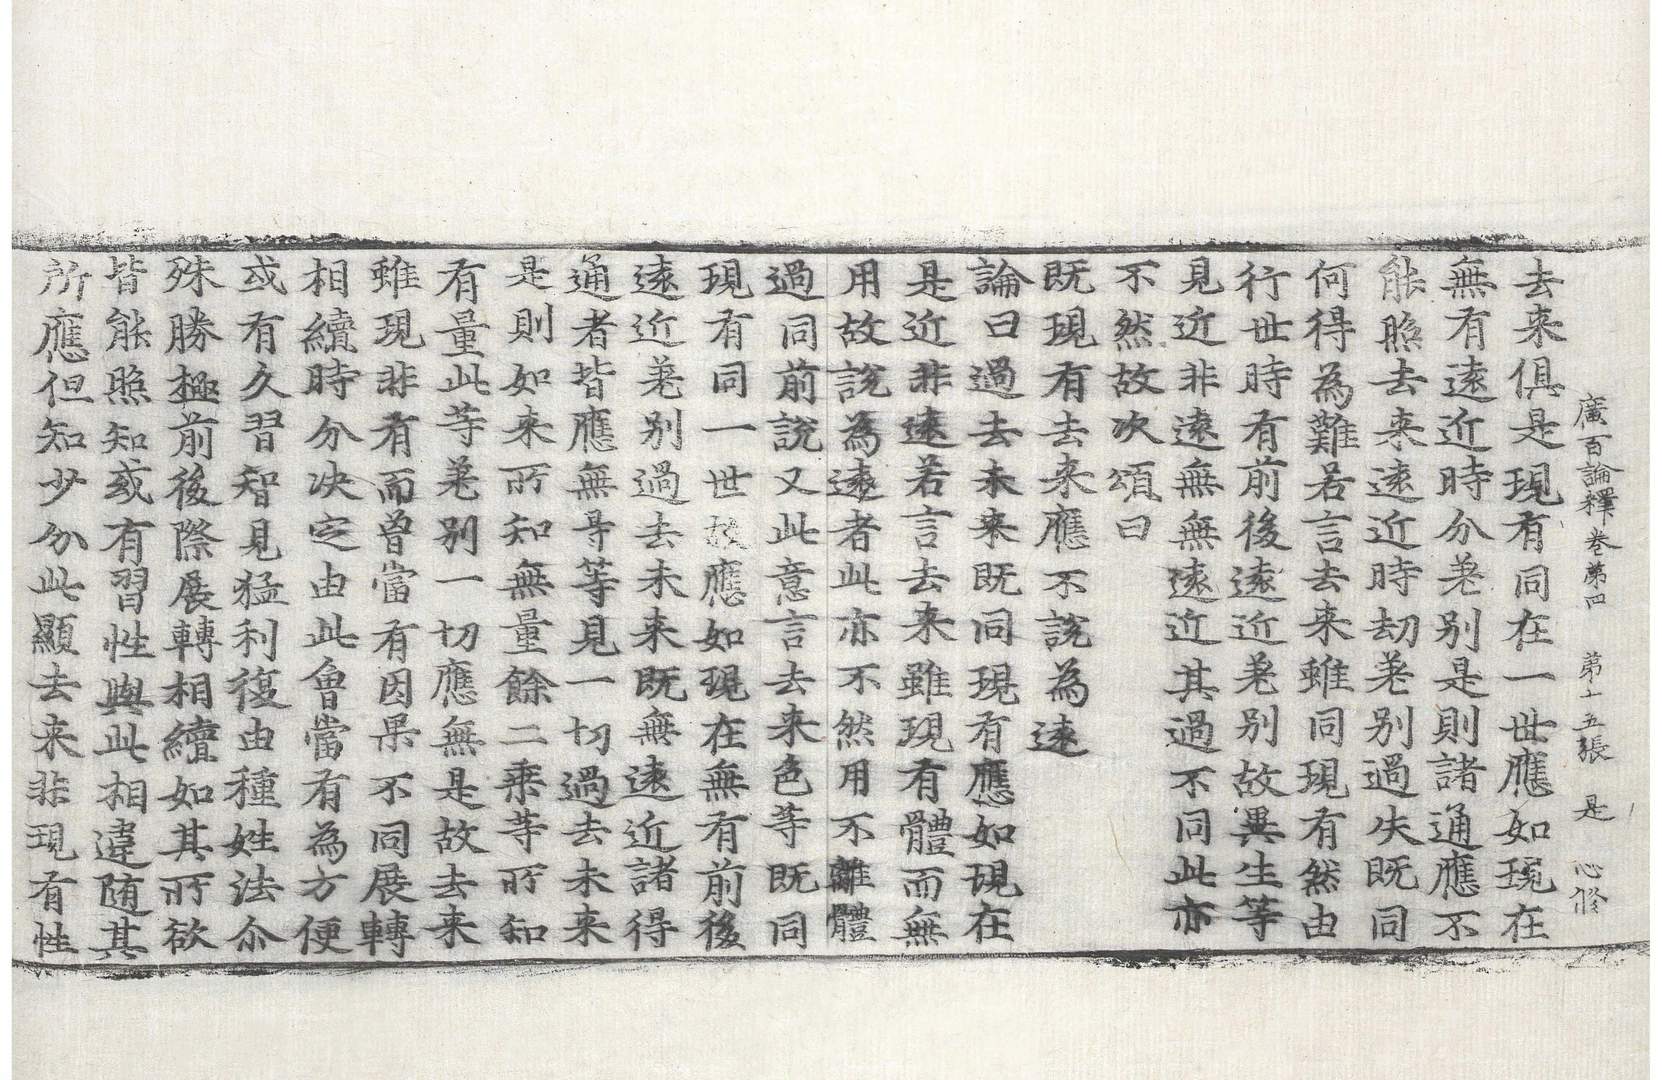 廣百論釋卷苐四　苐十五張　是　心修
去来俱是現有同在一世應如現在
無有遠近時分差别是則諸通應不
能照去来遠近時劫差别過失既同
何得為難若言去来雖同現有然由
行世時有前後遠近差别故異生等
見近非遠無無遠近其過不同此亦
不然故次頌曰
既現有去来應不說為遠
論曰過去未来既同現有應如現在
是近非遠若言去来雖現有體而無
用故說為遠者此亦不然用不離體
過同前說又此意言去来色等既同
現有同一世故應如現在無有前後
遠近差别過去未来既無遠近諸得
通者皆應無导等見一切過去未来
是則如来所知無量餘二乗等所知
有量此等差别一切應無是故去来
雖現非有而曾當有因果不同展轉
相續時分决定由此曾當有為方便
或有久習智見猛利復由種姓法尒
殊勝極前後際展轉相續如其所欲
皆能照知或有習性與此相違随其
所應但知少分此顯去来非現有性